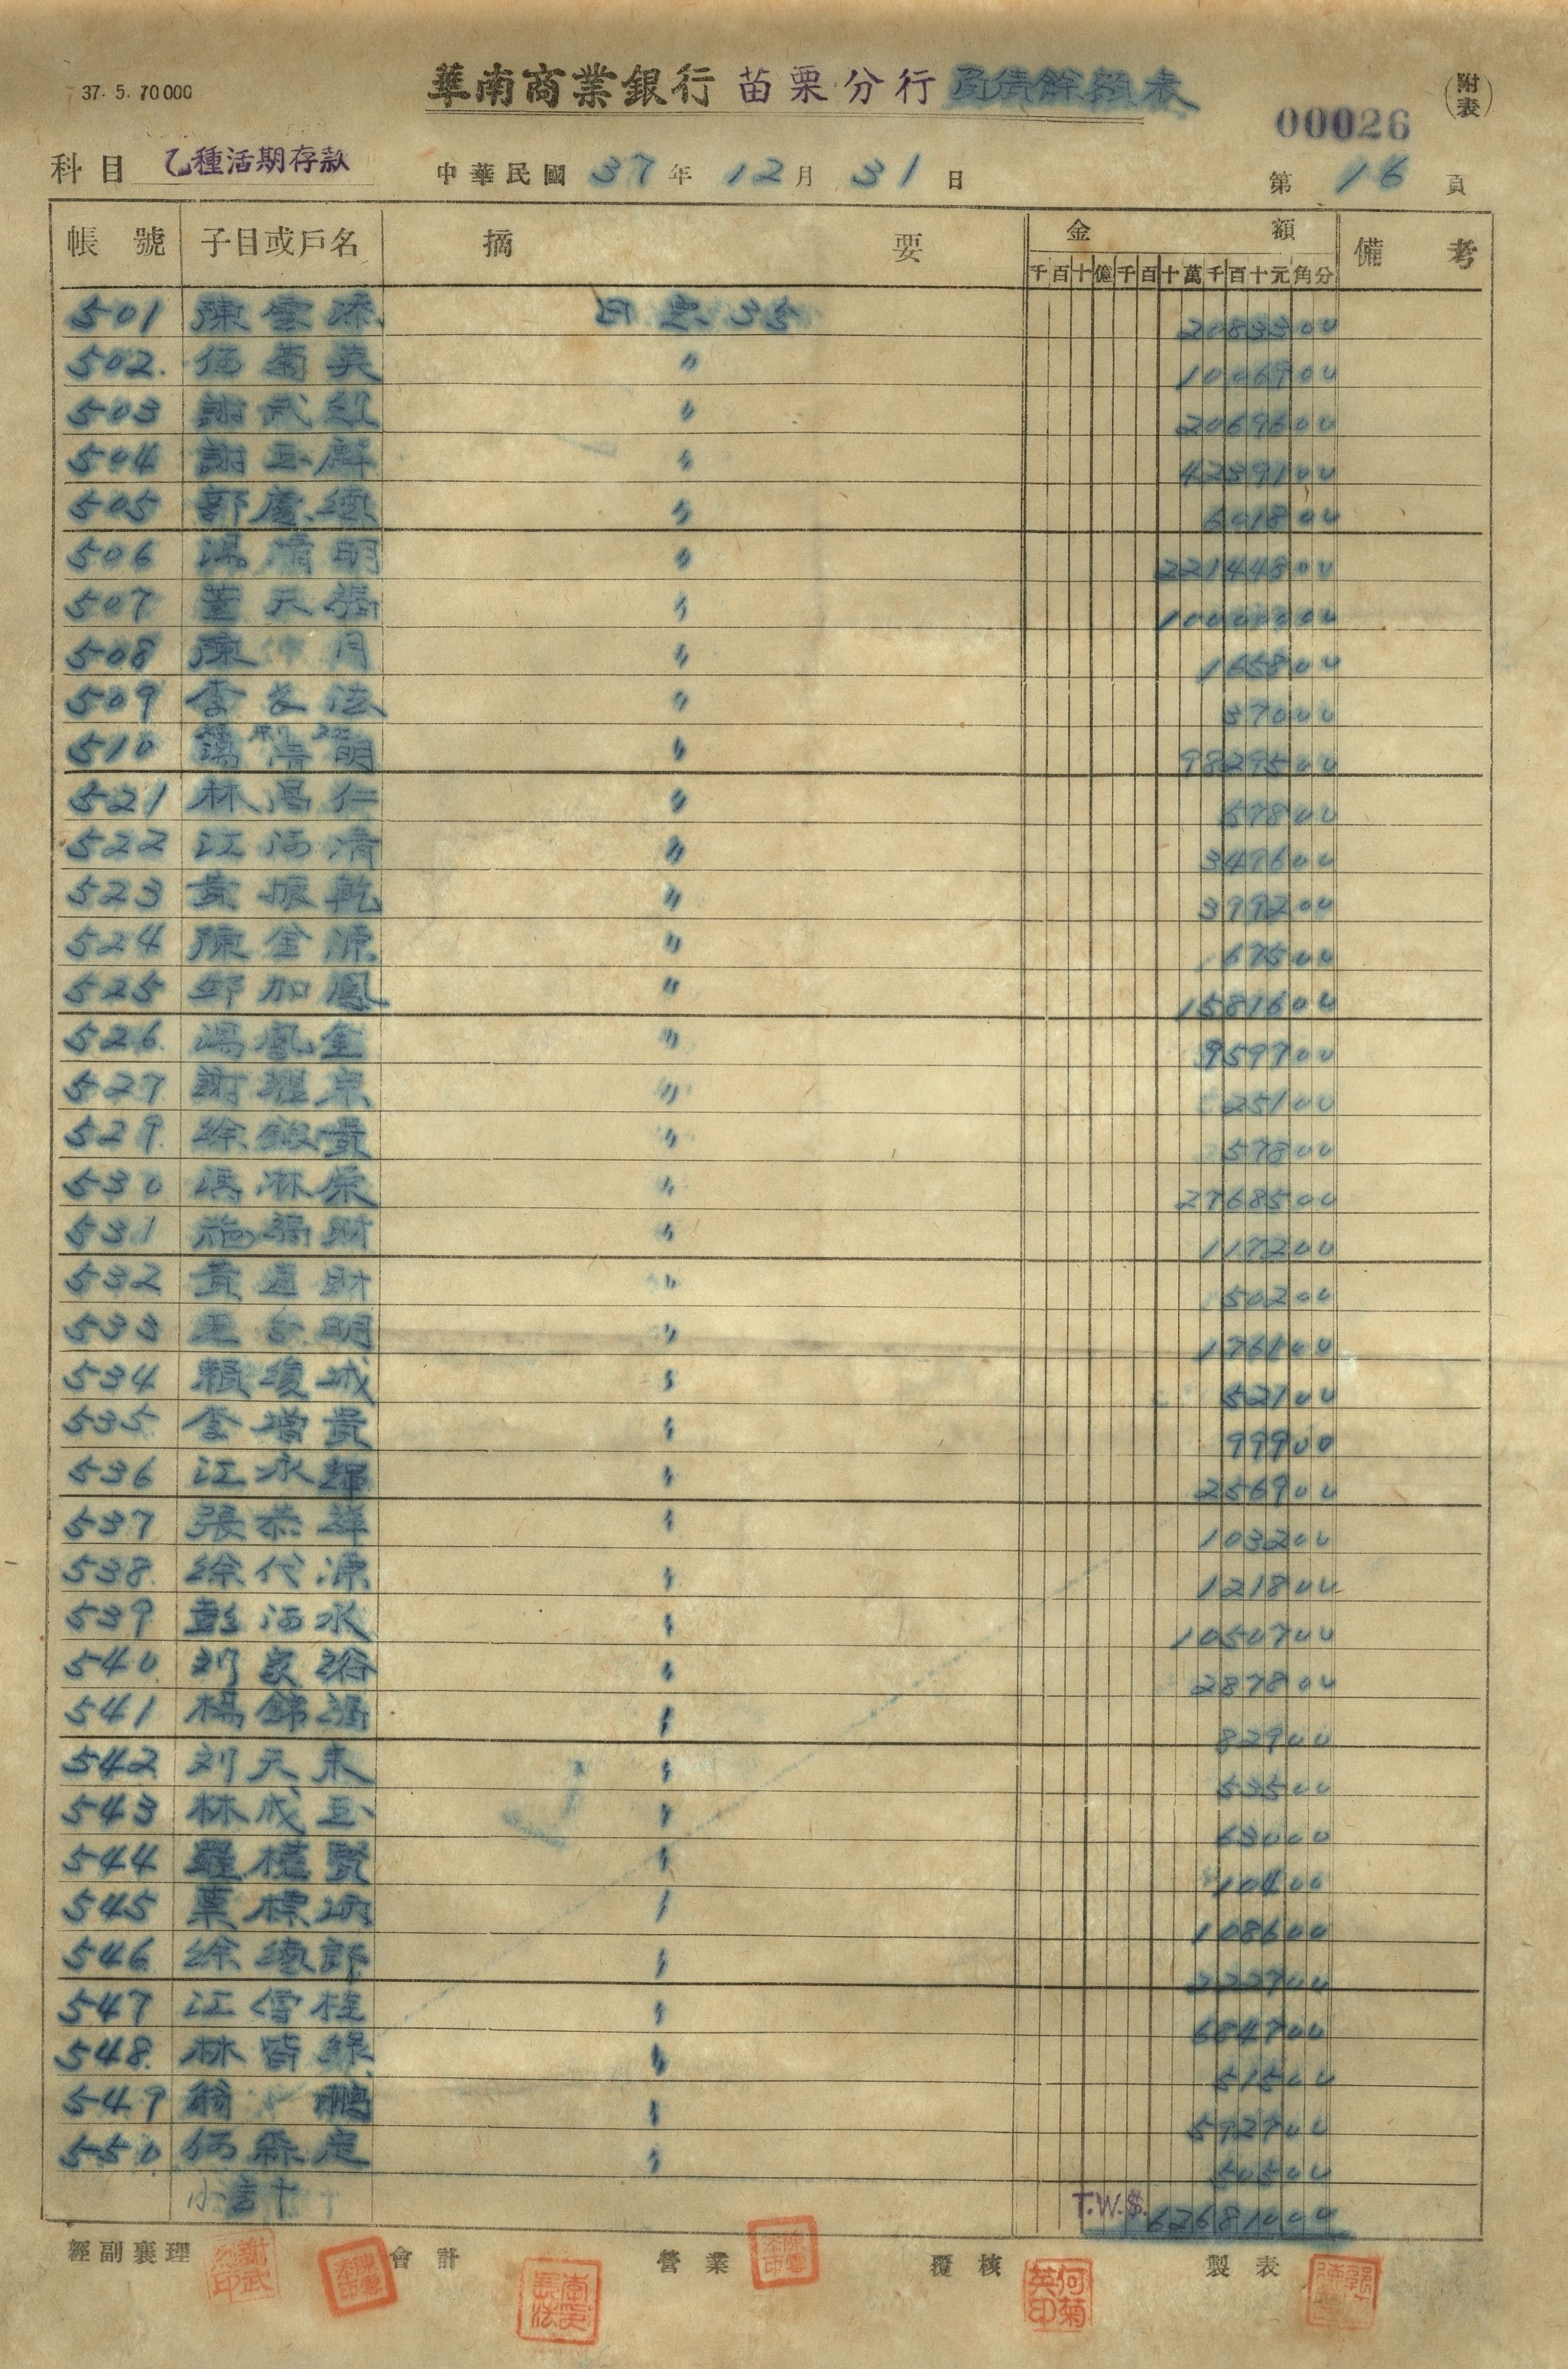 37. 5. 70000
華南商業銀行 苗栗分行 負債餘額表
(附表)
00026
科目 乙種活期存款 中華民國 37 年 12 月 31 日 第 16 頁
帳號 子目或戶名 摘要 金額 備考
千百十億千百十萬千百十元角分
501 陳雲添 日息 35 2083300
502. 何菊英 〃 1006900
503 謝武烈 〃 2069600
504 謝玉麟 〃 4239100
505 郭慶德 〃 601800
506 湯清明 〃 22144800
507 葉天 〃 10000000
508 陳 月 〃 165800
509 李長法 〃 37000
510 湯清明 〃 9829500
521 林昌仁 〃 57800
522 江河清 〃 349600
523 黃振乾 〃 399200
524 陳金源 〃 67500
525 邱加鳳 〃 1581600
526. 湯鳳金 〃 959700
527. 謝 宗 〃 25100
529. 徐 貴 〃 57800
530 馮林榮 〃 2768500
531 施 財 〃 117200
532 黃通財 〃 50200
533 王 明 〃 176100
534 賴 城 〃 52100
535. 李增貴 〃 99900
536 江永輝 〃 256900
537 張恭祥 〃 103200
538. 徐代源 〃 121800
539. 彭河水 〃 1050700
540. 刘家 〃 287800
541 楊錦 〃 82900
542. 刘天来 〃 53500
543 林成玉 〃 63000
544 羅 賢 〃 10400
545 葉標 〃 108600
546. 徐德郎 〃 222700
547 江雪桂 〃 684700
548. 林皆線 〃 51500
549 翁 鵬 〃 592700
550 何 定 〃 50500
小計 T.W.$. 62681000
經副襄理 會計 營業 覆核 製表
謝武烈印 陳雲添印 李長法 陳雲添印 何菊英印